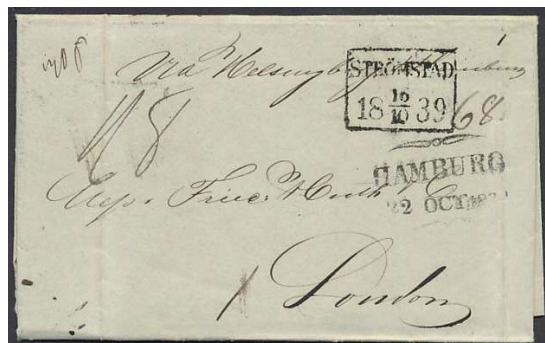 1
Via Helsingborg Hamburg
STRÖMSTAD
18 16/10 39
68
18
HAMBURG
22 OCT 1839
Messrs Fredk Huth & Co
London